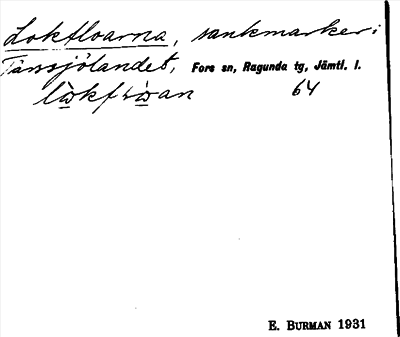 Lokfloarna, sankmarker i
Tärssjölandet, Fors sn, Ragunda tg, Jämtl. l.
64
E. BURMAN 1931